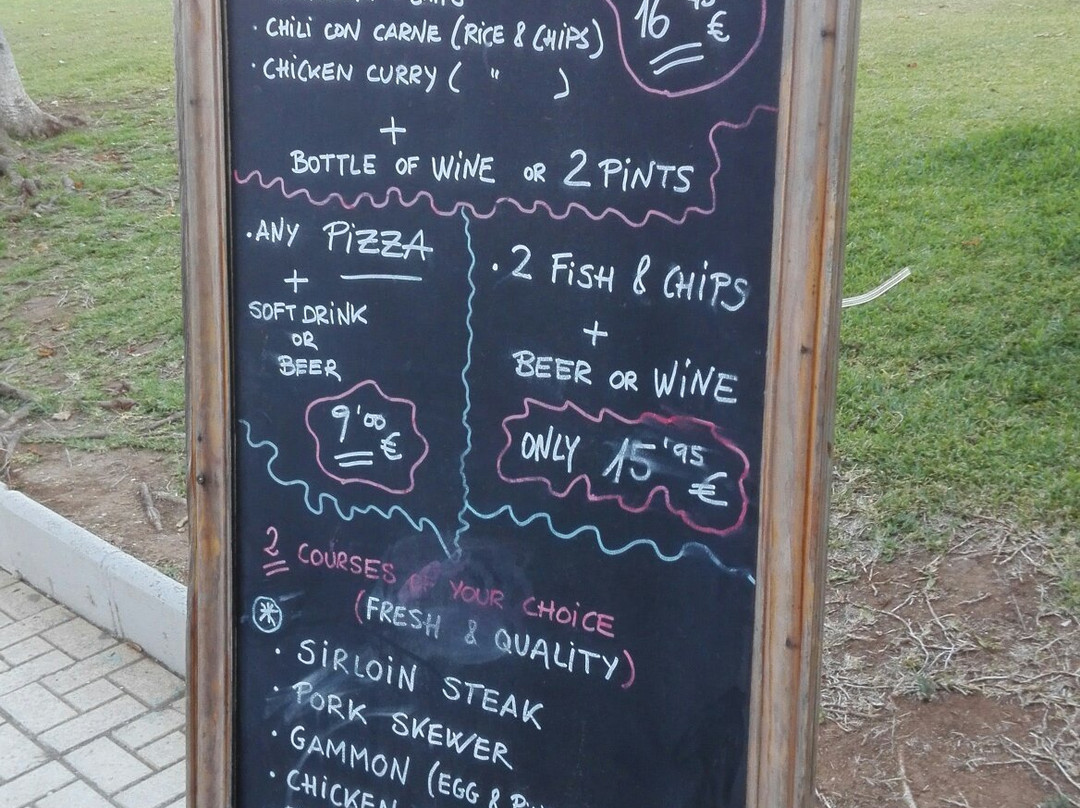 16
€
· CHILI CON CARNE (RICE & CHIPS)
· CHICKEN CURRY ( " )
+
BOTTLE OF WINE OR 2 PINTS
· ANY PIZZA
+
SOFT DRINK
OR
BEER
9'00 €
· 2 FISH & CHIPS
+
BEER OR WINE
ONLY 15'95 €
2 COURSES OF YOUR CHOICE
(FRESH & QUALITY)
· SIRLOIN STEAK
· PORK SKEWER
· GAMMON (EGG &
· CHICKEN